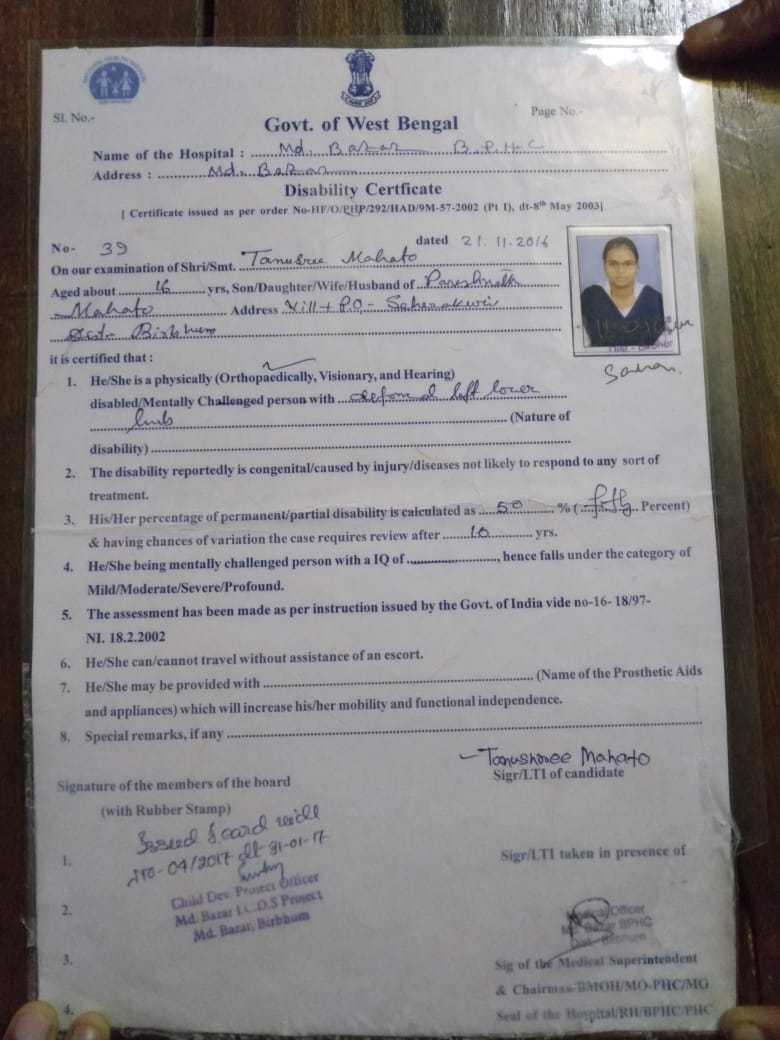 Sl. No.-
Page No.-
Govt. of West Bengal
Name of the Hospital : Md. Bazar B.P.H.C
Address : Md. Bazar
Disability Certficate
[ Certificate issued as per order No-HF/O/PHP/292/HAD/9M-57-2002 (Pt I), dt-8th May 2003]
No- 39 dated 21.11.2016
On our examination of Shri/Smt. Tanusree Mahato
Aged about 16 yrs, Son/Daughter/Wife/Husband of Pareshnath
Mahato Address Vill + P.O - 
Dist- Birbhum
it is certified that :
1. He/She is a physically (Orthopaedically, Visionary, and Hearing)
disabled/Mentally Challenged person with deformed left lower
limb (Nature of
disability)
2. The disability reportedly is congenital/caused by injury/diseases not likely to respond to any sort of
treatment.
3. His/Her percentage of permanent/partial disability is calculated as 50 % ( fifty Percent)
& having chances of variation the case requires review after 10 yrs.
4. He/She being mentally challenged person with a IQ of , hence falls under the category of
Mild/Moderate/Severe/Profound.
5. The assessment has been made as per instruction issued by the Govt. of India vide no-16- 18/97-
NI. 18.2.2002
6. He/She can/cannot travel without assistance of an escort.
7. He/She may be provided with (Name of the Prosthetic Aids
and appliances) which will increase his/her mobility and functional independence.
8. Special remarks, if any
Tanushree Mahato
Sigr/LTI of candidate
Signature of the members of the board
(with Rubber Stamp)
Issued I card vide
No-04/2017 dt 31-01-17
Child Dev. Project Officer
Md. Bazar I.C.D.S Project
Md. Bazar, Birbhum
1.
2.
3.
4.
Sigr/LTI taken in presence of
Medical Officer
Md. Bazar BPHC
Dist - Birbhum
Sig of the Medical Superintendent
& Chairman-BMOH/MO-PHC/MO
Seal of the Hospital/RH/BPHC/PHC